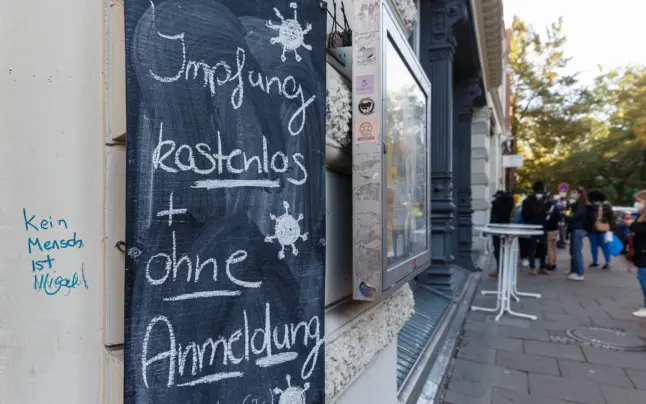 Impfung
kostenlos
+
ohne
Anmeldung
Kein
Mensch
ist
Illegal